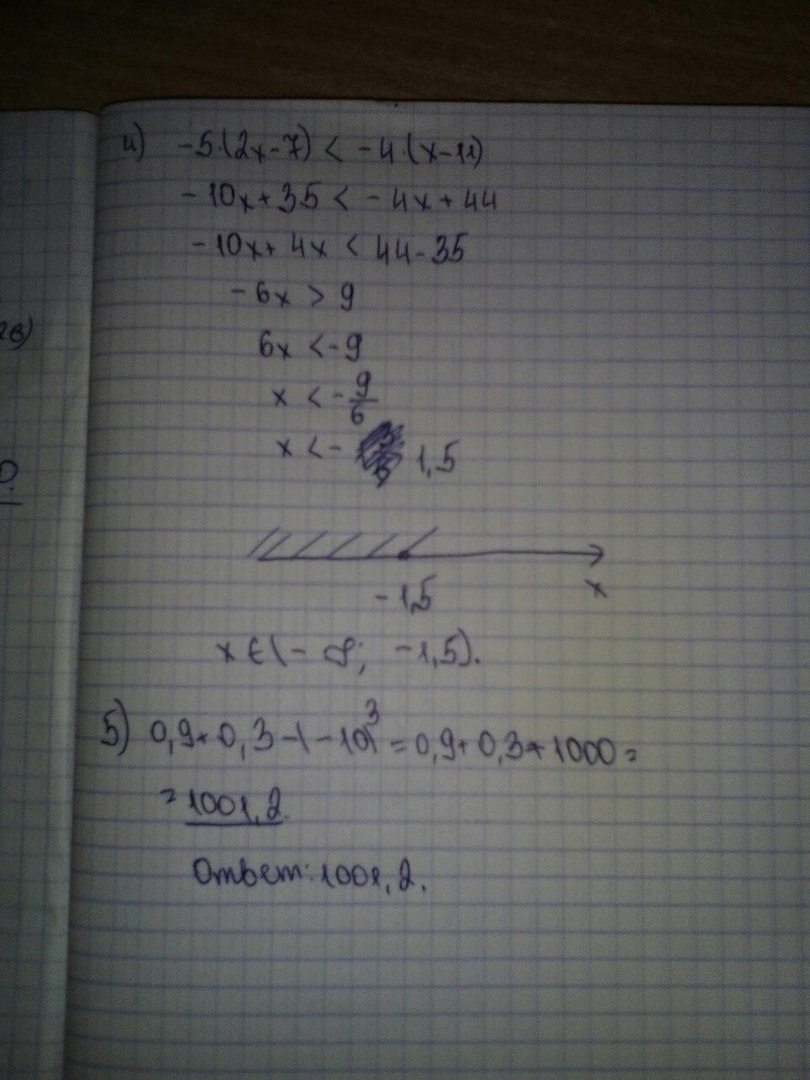 4) -5·(2x-7) < -4·(x-11)
-10x+35 < -4x+44
-10x+4x < 44-35
-6x > 9
6x < -9
x < -9/6
x < - 1,5
-1,5 x
x ∈ (-∞; -1,5).
5) 0,9+0,3-(-10)³=0,9+0,3+1000=
=1001,2
Ответ: 1001,2.